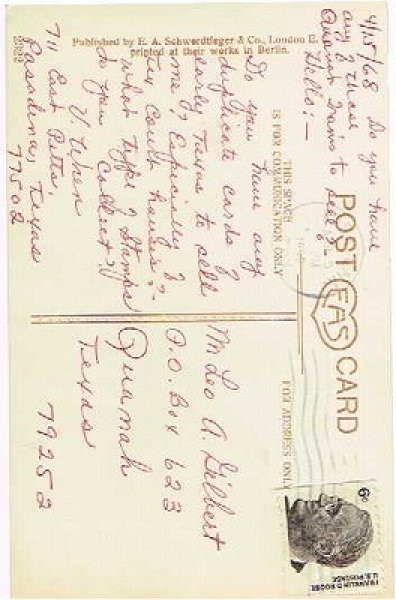 4/15/68 Do you have
any of these
August to sell?
Hello:-
Do you have any
duplicate cards of
early Texas to sell
me? Especially of
Cty Court houses?-
what type of Stamps
do you collect?
V.
711 East Pitts,
Pasadena, Texas
77502
POST CARD
EAS
THIS SPACE
IS FOR COMMUNICATION ONLY
FOR ADDRESS ONLY
M Leo A. Gilbert
P.O. Box 623
Quanah
Texas 79252
6¢
FRANKLIN D. ROOSE
U.S. POSTAGE
Published by E. A. Schwerdtfeger & Co., London E.
printed at their works in Berlin.